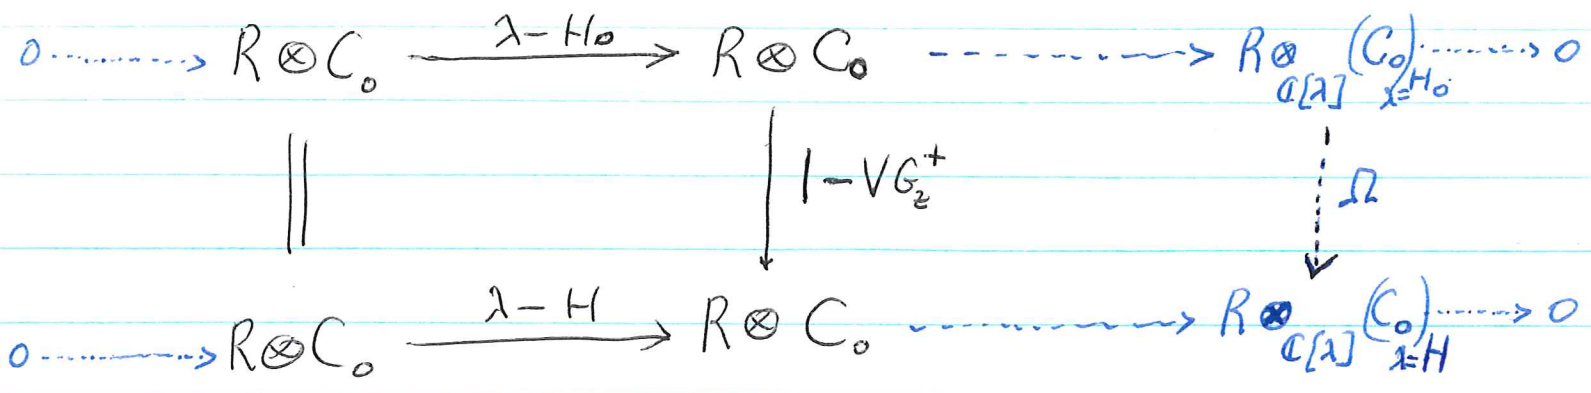 0 ⇢ R ⊗ C₀ —λ−H₀→ R ⊗ C₀ ⇢ R ⊗_{ℂ[λ]} (C₀)_{λ=H₀} ⇢ 0
‖ ↓ 1−VG_z^+ ⇣ Ω
0 ⇢ R ⊗ C₀ —λ−H→ R ⊗ C₀ ⇢ R ⊗_{ℂ[λ]} (C₀)_{λ=H} ⇢ 0